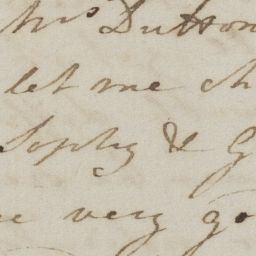 Mrs Dutton
let me ch
Sophy & G
e very go